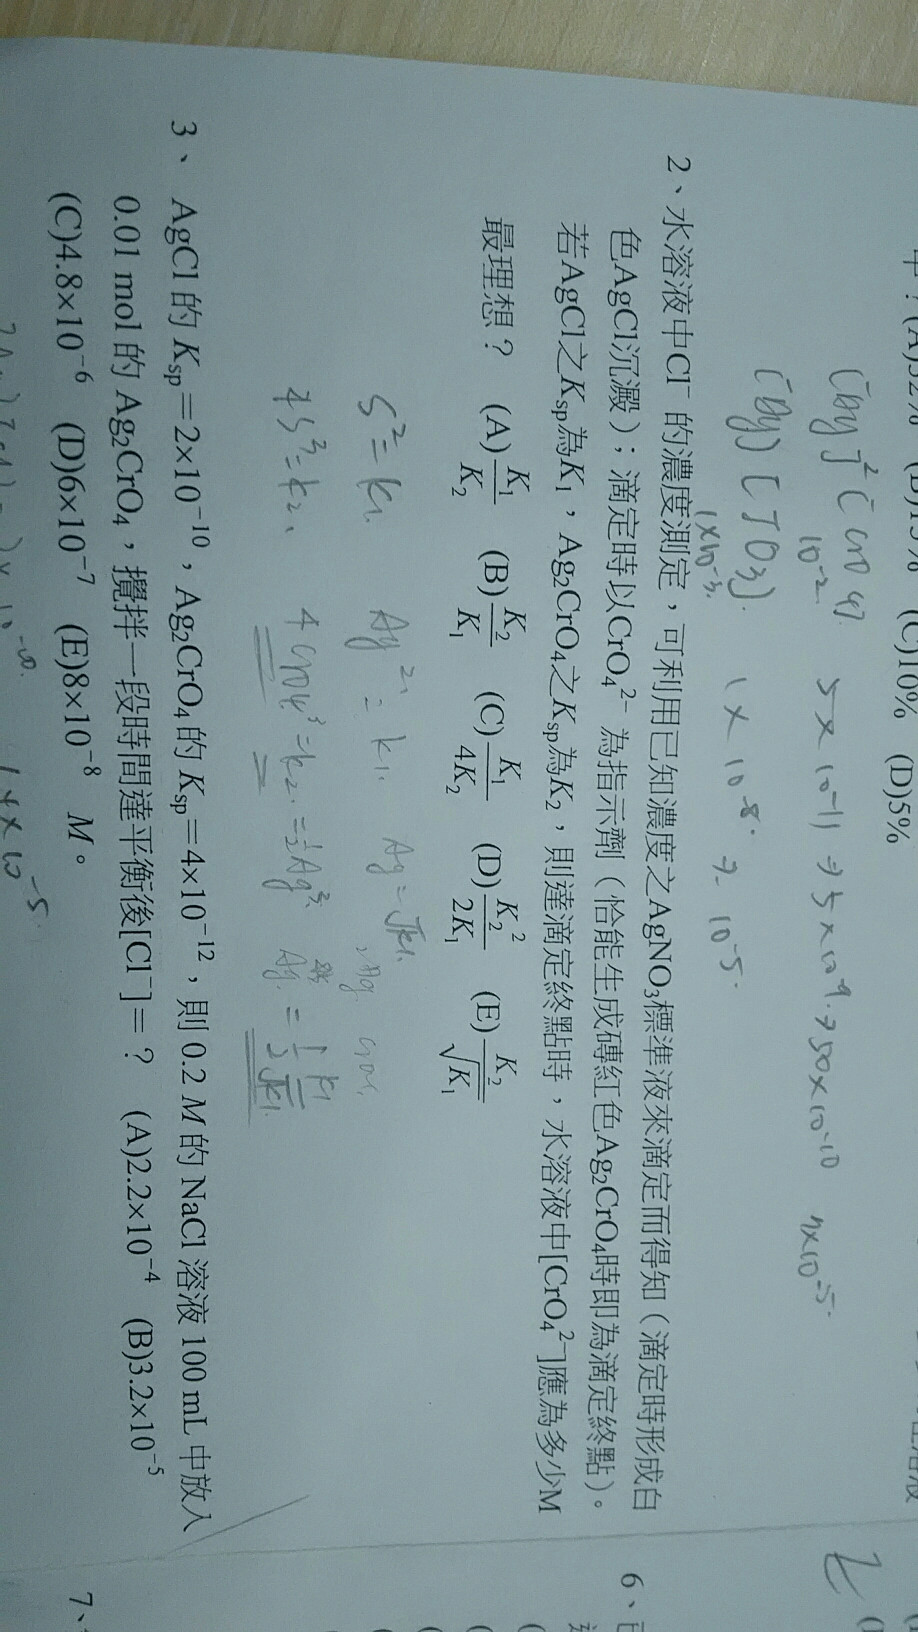 (C)10% (D)5%
[Ag]²[CrO4]
10⁻²
1×10⁻³
1×10⁻⁸ → 10⁻⁵
2、水溶液中Cl⁻ 的濃度測定，可利用已知濃度之AgNO₃標準液來滴定而得知（滴定時形成白
色AgCl沉澱）；滴定時以CrO₄²⁻ 為指示劑（恰能生成磚紅色Ag₂CrO₄時即為滴定終點）。
若AgCl之Ksp為K₁，Ag₂CrO₄之Ksp為K₂，則達滴定終點時，水溶液中[CrO₄²⁻]應為多少M
最理想？ (A)K₁/K₂ (B)K₂/K₁ (C)K₁/4K₂ (D)K₂²/2K₁ (E)K₂/√K₁
S²=K₁ Ag²=K₁ Ag=√K₁
4S³=K₂
3、 AgCl 的 Ksp=2×10⁻¹⁰，Ag₂CrO₄ 的 Ksp=4×10⁻¹²，則 0.2 M 的 NaCl 溶液 100 mL 中放入
0.01 mol 的 Ag₂CrO₄，攪拌一段時間達平衡後[Cl⁻]=？ (A)2.2×10⁻⁴ (B)3.2×10⁻⁵
(C)4.8×10⁻⁶ (D)6×10⁻⁷ (E)8×10⁻⁸ M。
6、
7、